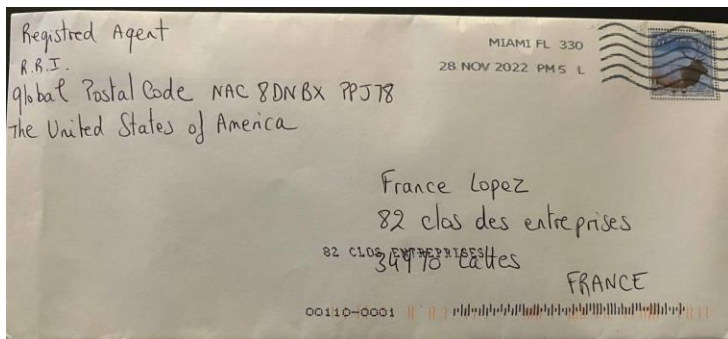 Registred Agent
R.R.I.
global Postal Code NAC 8DNBX PPJ78
The United States of America
MIAMI FL 330
28 NOV 2022 PM 5 L
France Lopez
82 clos des entreprises
82 CLOS ENTREPRISES
34970 Lattes
FRANCE
00110-0001